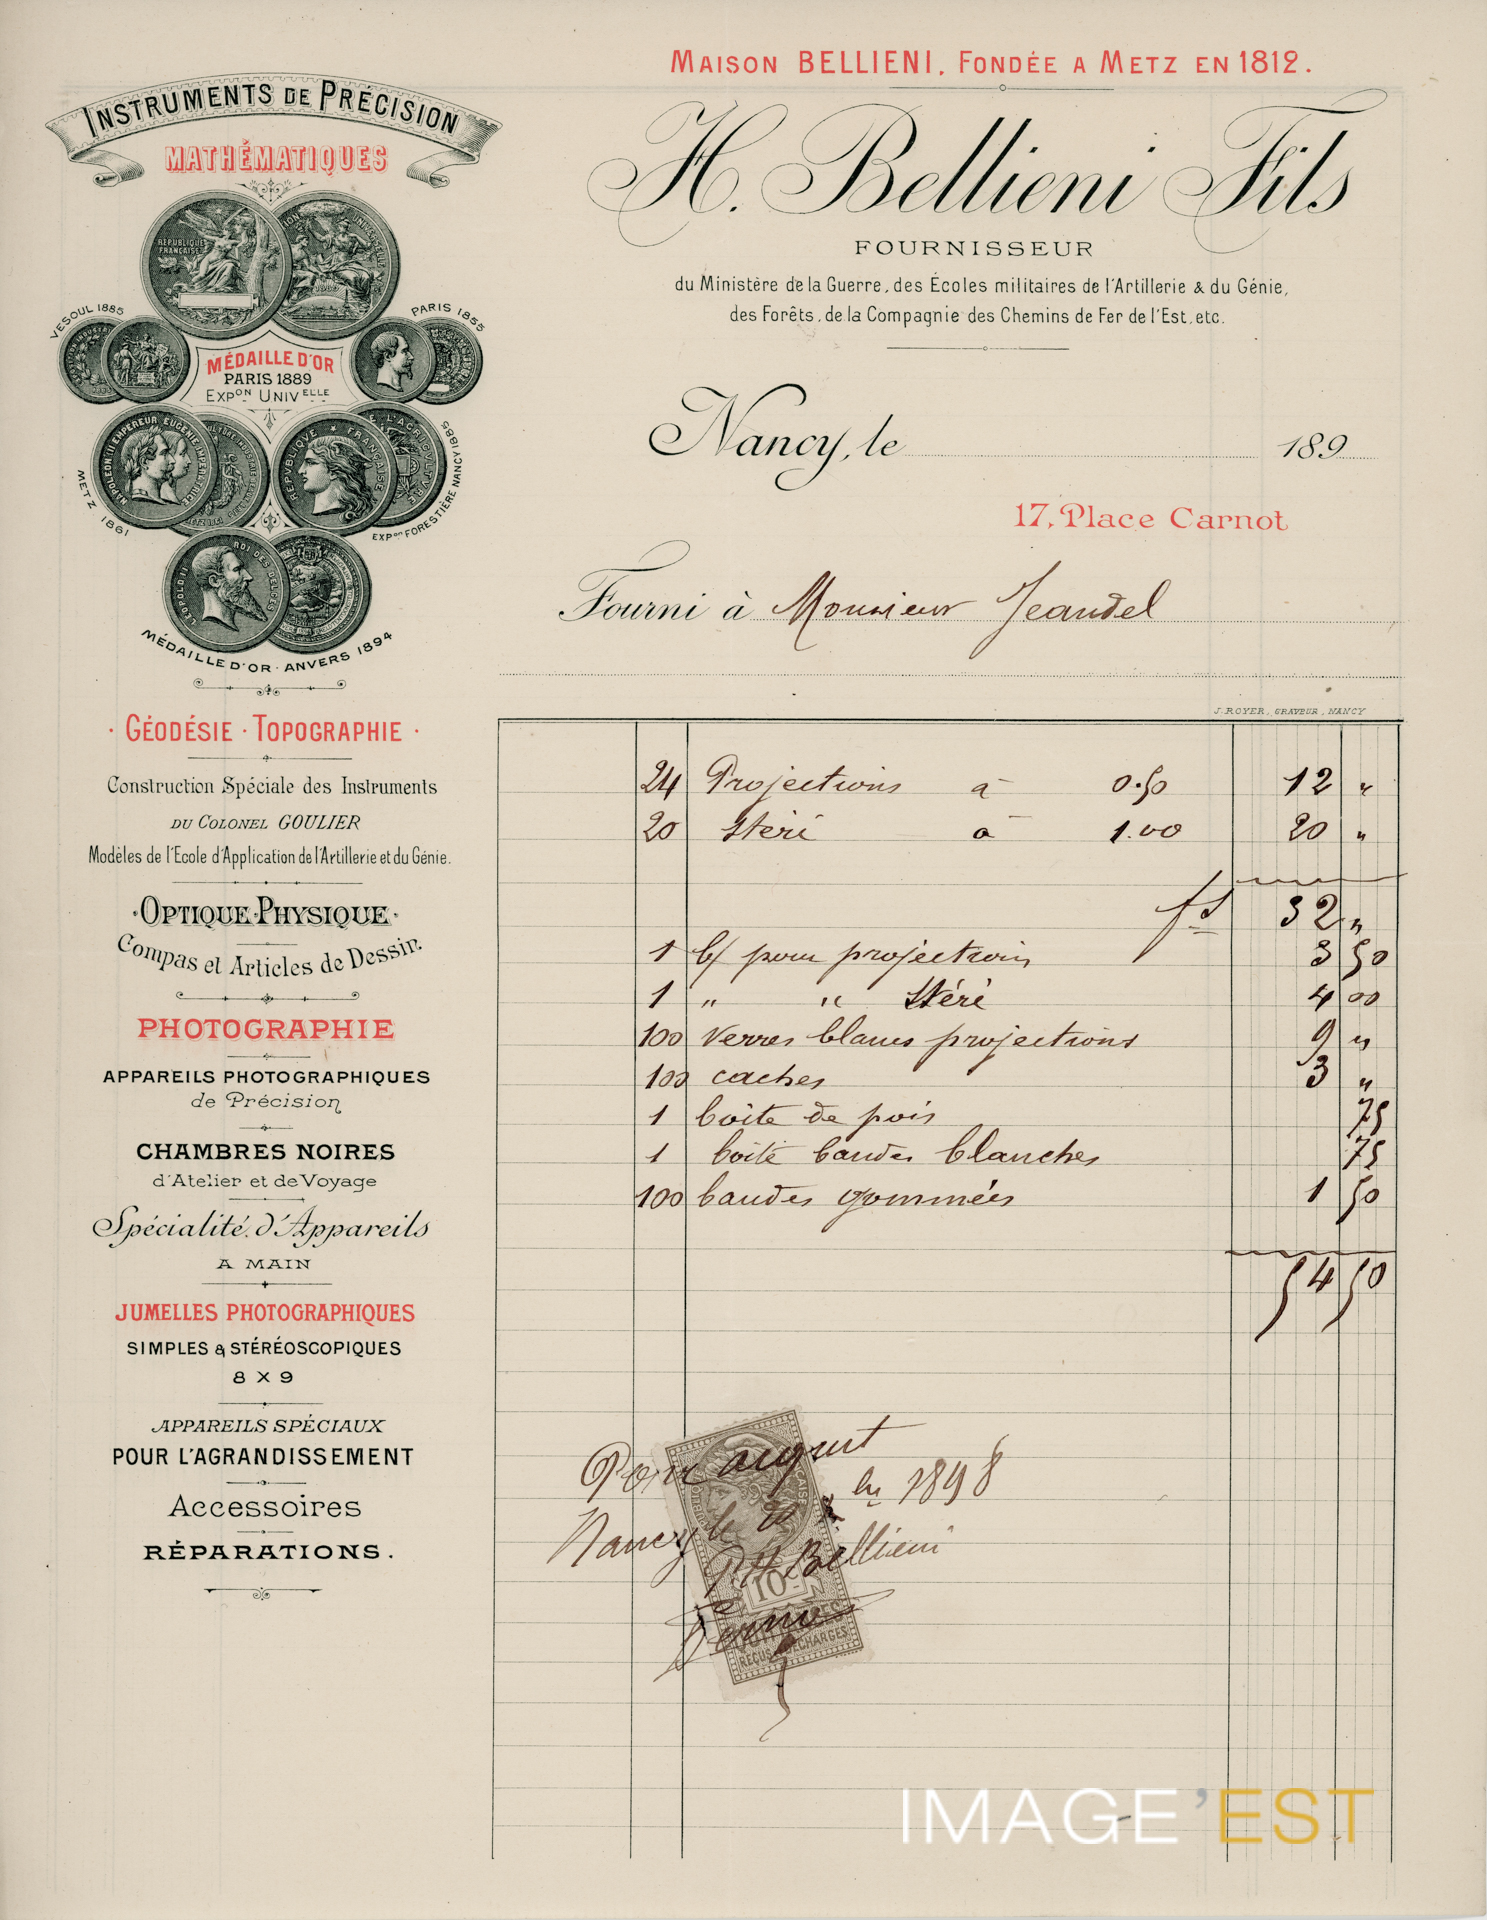 MAISON BELLIENI, FONDÉE A METZ EN 1812.
INSTRUMENTS DE PRÉCISION
MATHÉMATIQUES
H. Bellieni Fils
FOURNISSEUR
du Ministère de la Guerre, des Écoles militaires de l'Artillerie & du Génie,
des Forêts, de la Compagnie des Chemins de Fer de l'Est, etc.
RÉPUBLIQUE
FRANÇAISE
1889
VESOUL 1885
PARIS 1855
MÉDAILLE D'OR
PARIS 1889
EXPON UNIVELLE
NAPOLEON III EMPEREUR EUGENIE IMPERATRICE
REPVBLIQVE FRANÇAISE
METZ 1861
EXPon FORESTIÈRE NANCY 1885
LEOPOLD II ROI DES BELGES
MÉDAILLE D'OR · ANVERS 1894
Nancy, le 189
17, Place Carnot
Fourni à Monsieur Jeandel
J. ROYER, GRAVEUR, NANCY
· GÉODÉSIE · TOPOGRAPHIE ·
Construction Spéciale des Instruments
DU COLONEL GOULIER
Modèles de l'Ecole d'Application de l'Artillerie et du Génie.
· OPTIQUE · PHYSIQUE ·
Compas et Articles de Dessin.
PHOTOGRAPHIE
APPAREILS PHOTOGRAPHIQUES
de Précision
CHAMBRES NOIRES
d'Atelier et de Voyage
Spécialité d'Appareils
A MAIN
JUMELLES PHOTOGRAPHIQUES
SIMPLES & STÉRÉOSCOPIQUES
8 X 9
APPAREILS SPÉCIAUX
POUR L'AGRANDISSEMENT
Accessoires
RÉPARATIONS.
24 Projections à 0.50 12 "
20 Stéré à 1.00 20 "
fs 32 "
1 b/ pour projection 3 50
1 " " Stéré 4 00
100 verres blancs projections 9 "
100 caches 3 "
1 boîte de pois 75
1 boîte bandes blanches 75
100 bandes gommées 1 50
54 50
Pour acquit
Nancy le 20 1898
P. H. Bellieni
10c
QUITTANCES
REÇUS & DÉCHARGES
IMAGE'EST